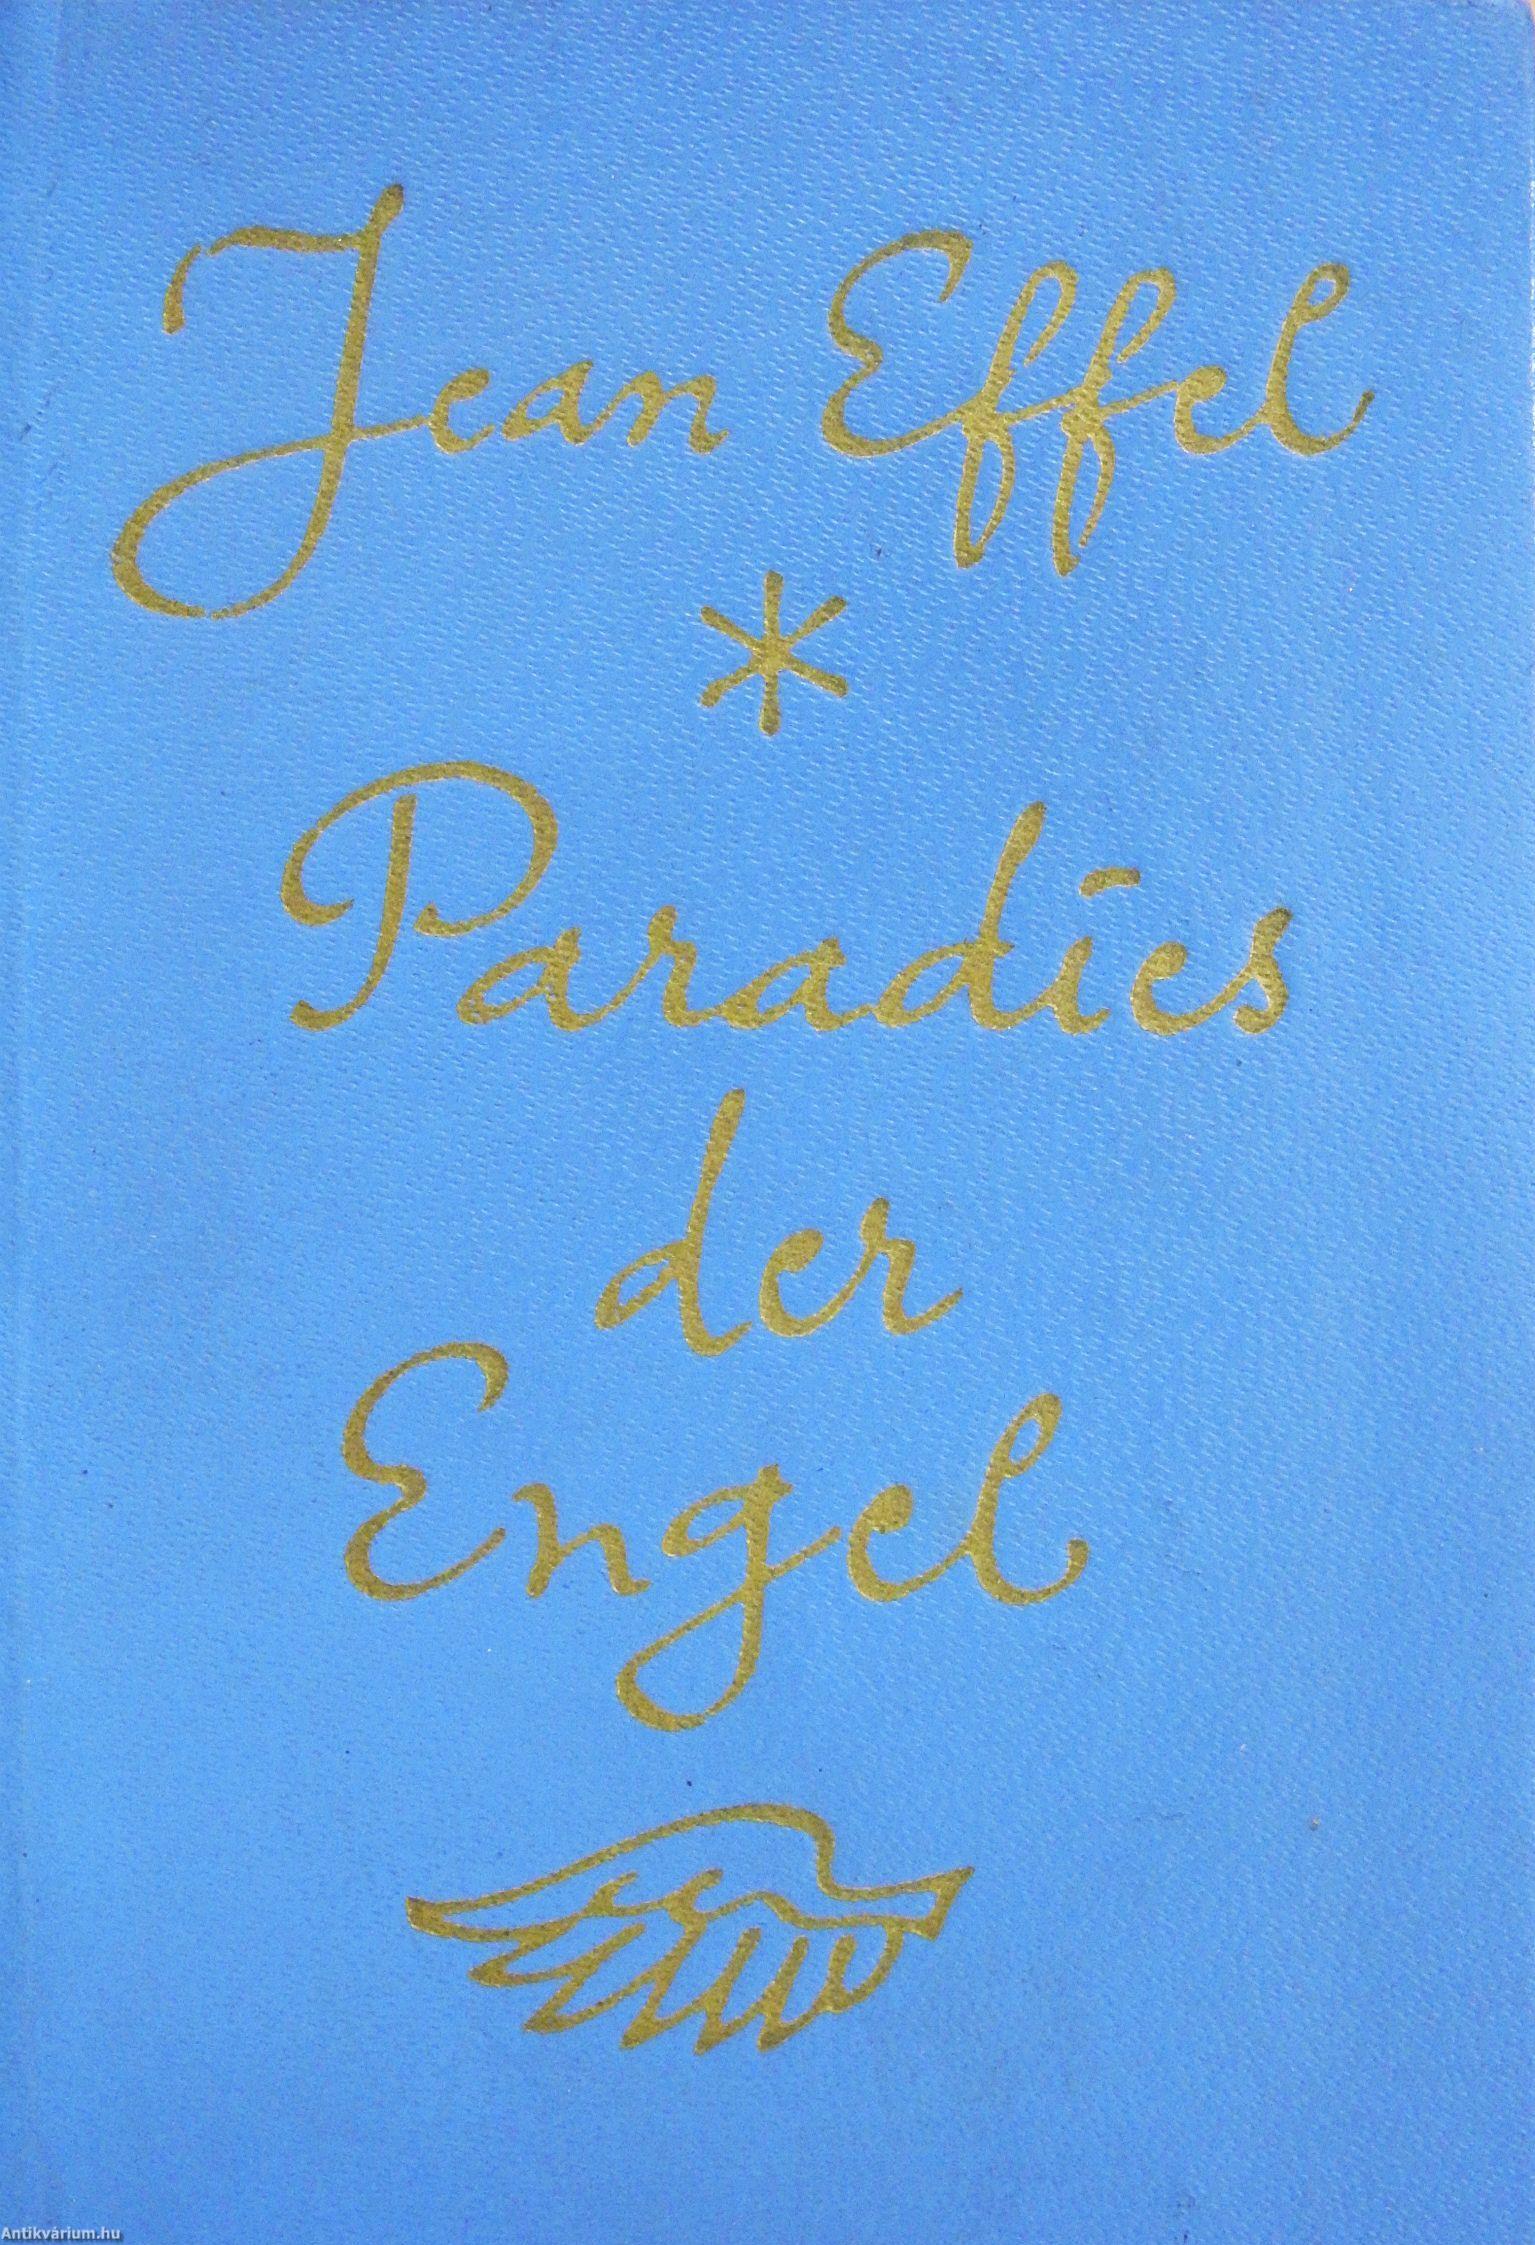 Jean Effel
*
Paradies
der
Engel
Antikvárium.hu